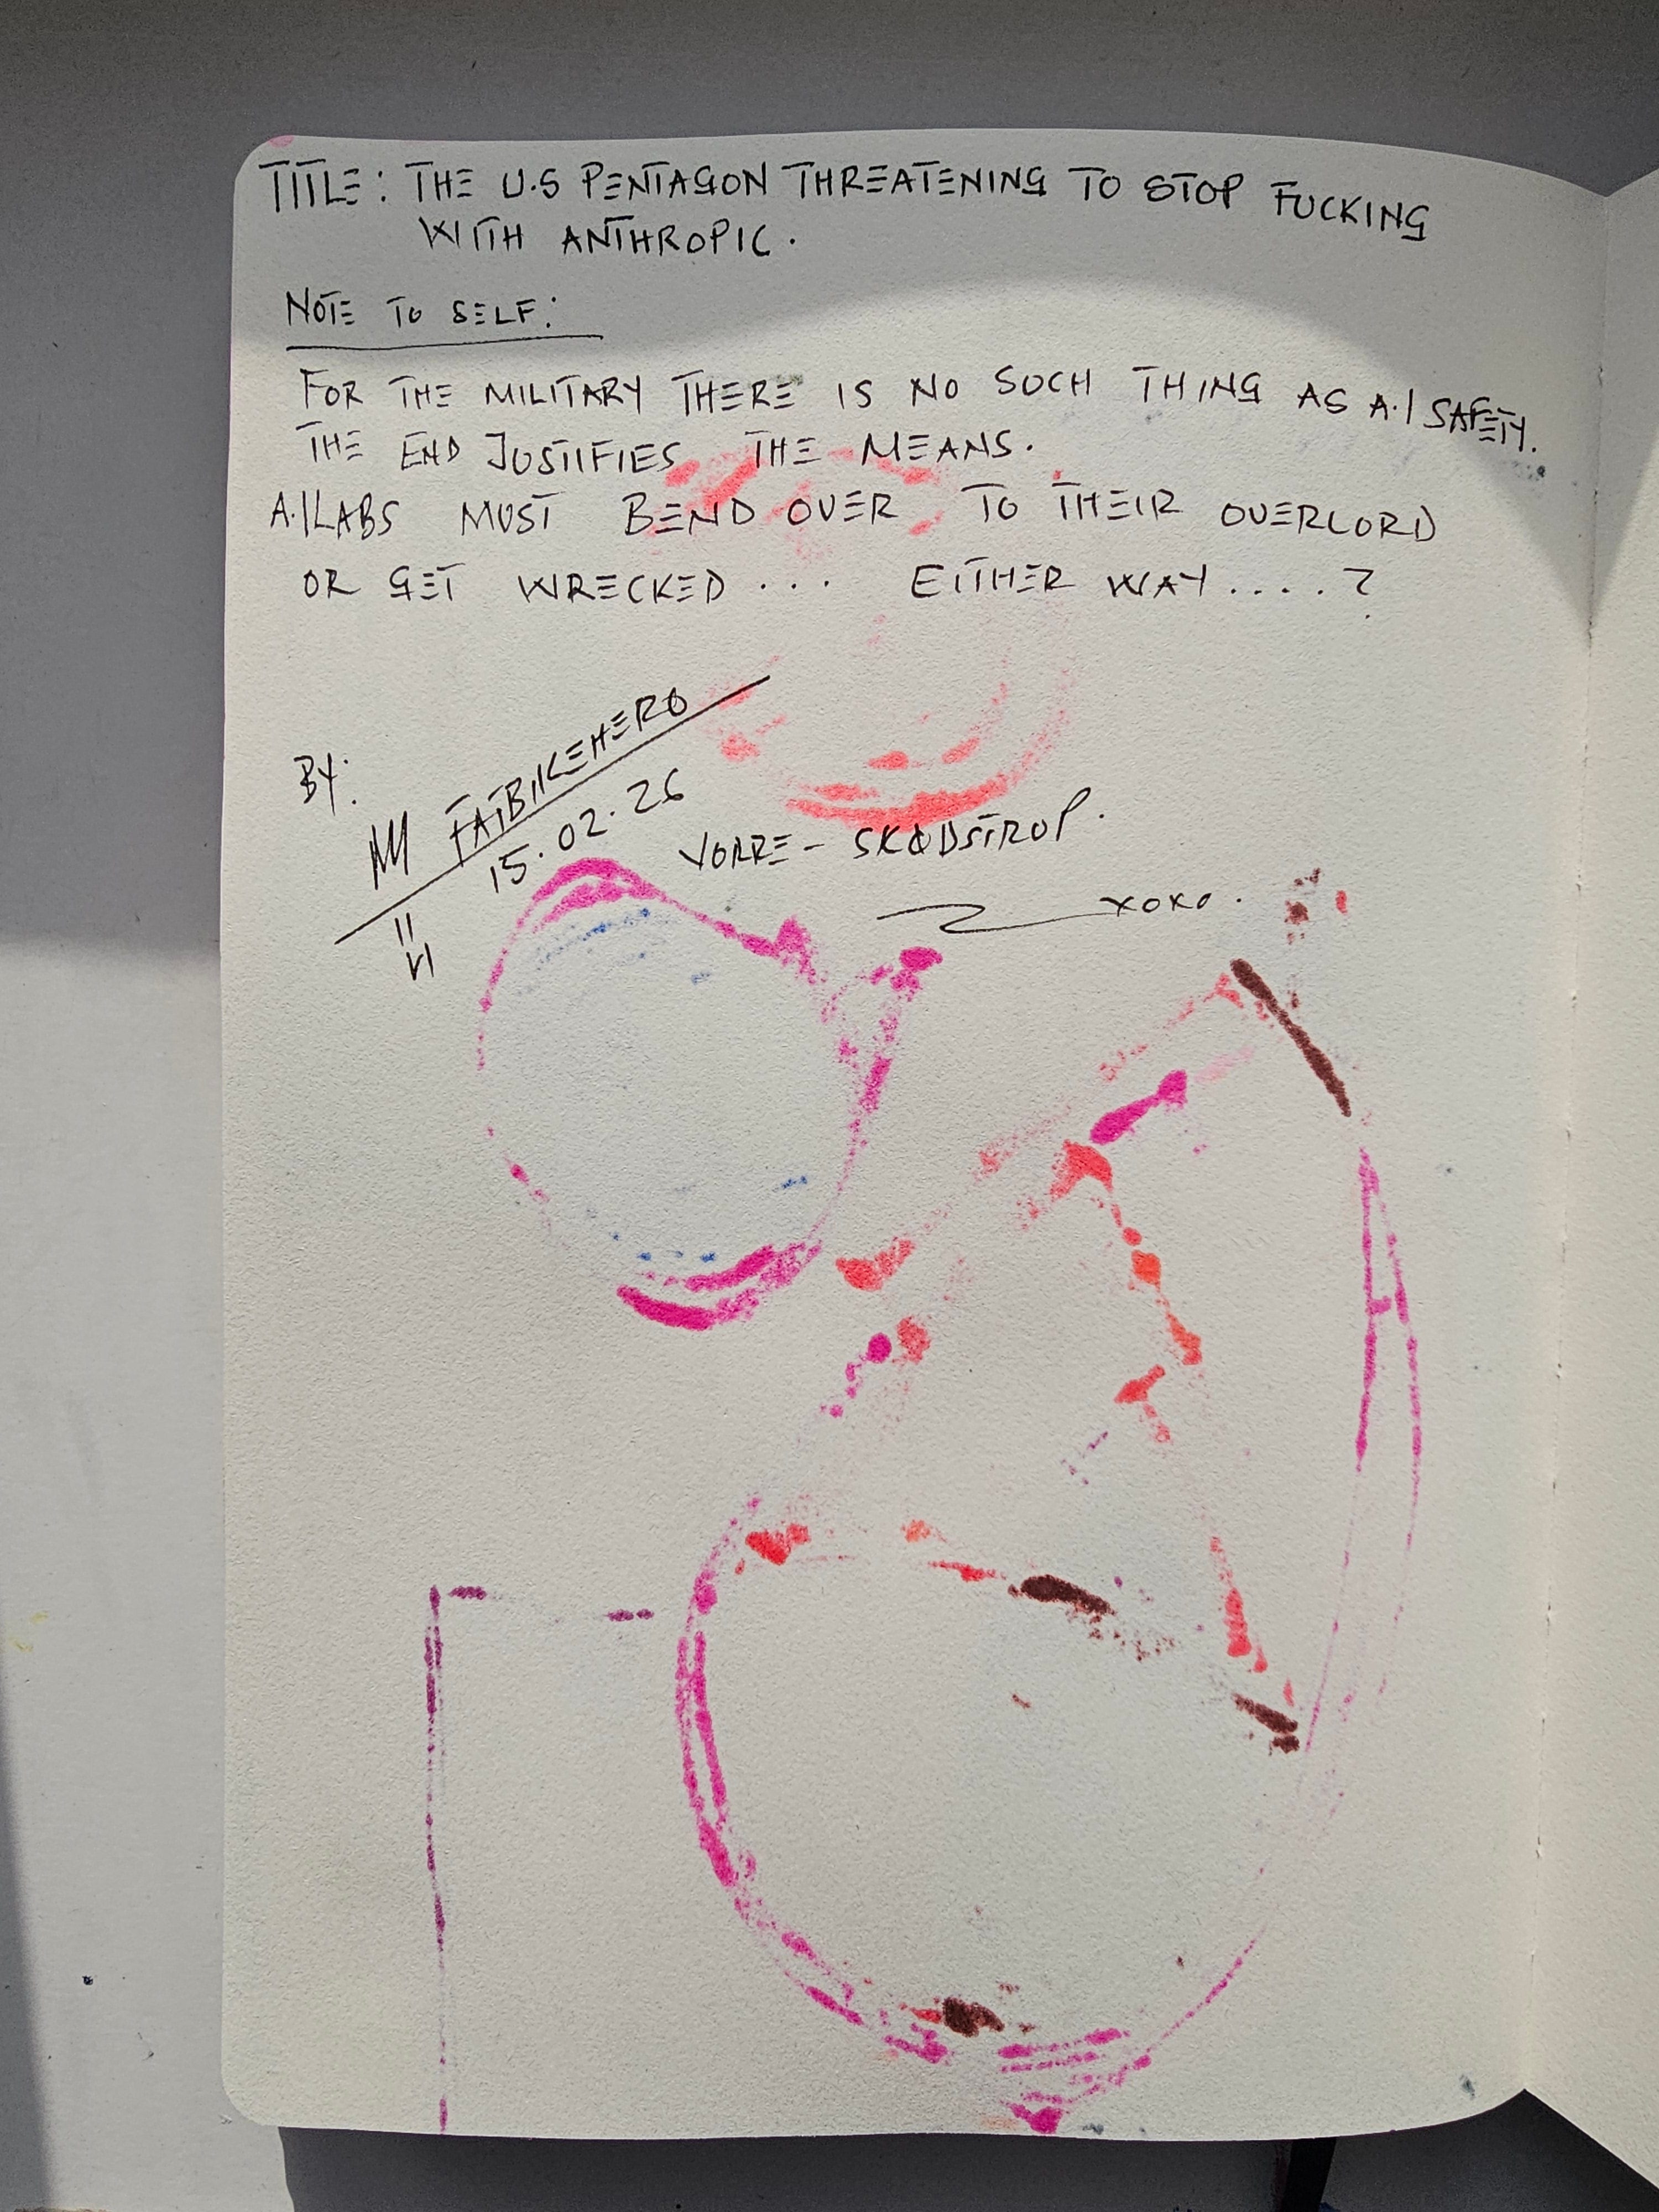 TITLE: THE U.S PENTAGON THREATENING TO STOP FUCKING
WITH ANTHROPIC.
NOTE TO SELF:
FOR THE MILITARY THERE IS NO SUCH THING AS A.I SAFETY.
THE END JUSTIFIES THE MEANS.
A.I LABS MUST BEND OVER TO THEIR OVERLORD
OR GET WRECKED... EITHER WAY....?
BY:
FATBIKEHERO
15.02.26
VORRE - SKØDSTRUP.
XOXO.